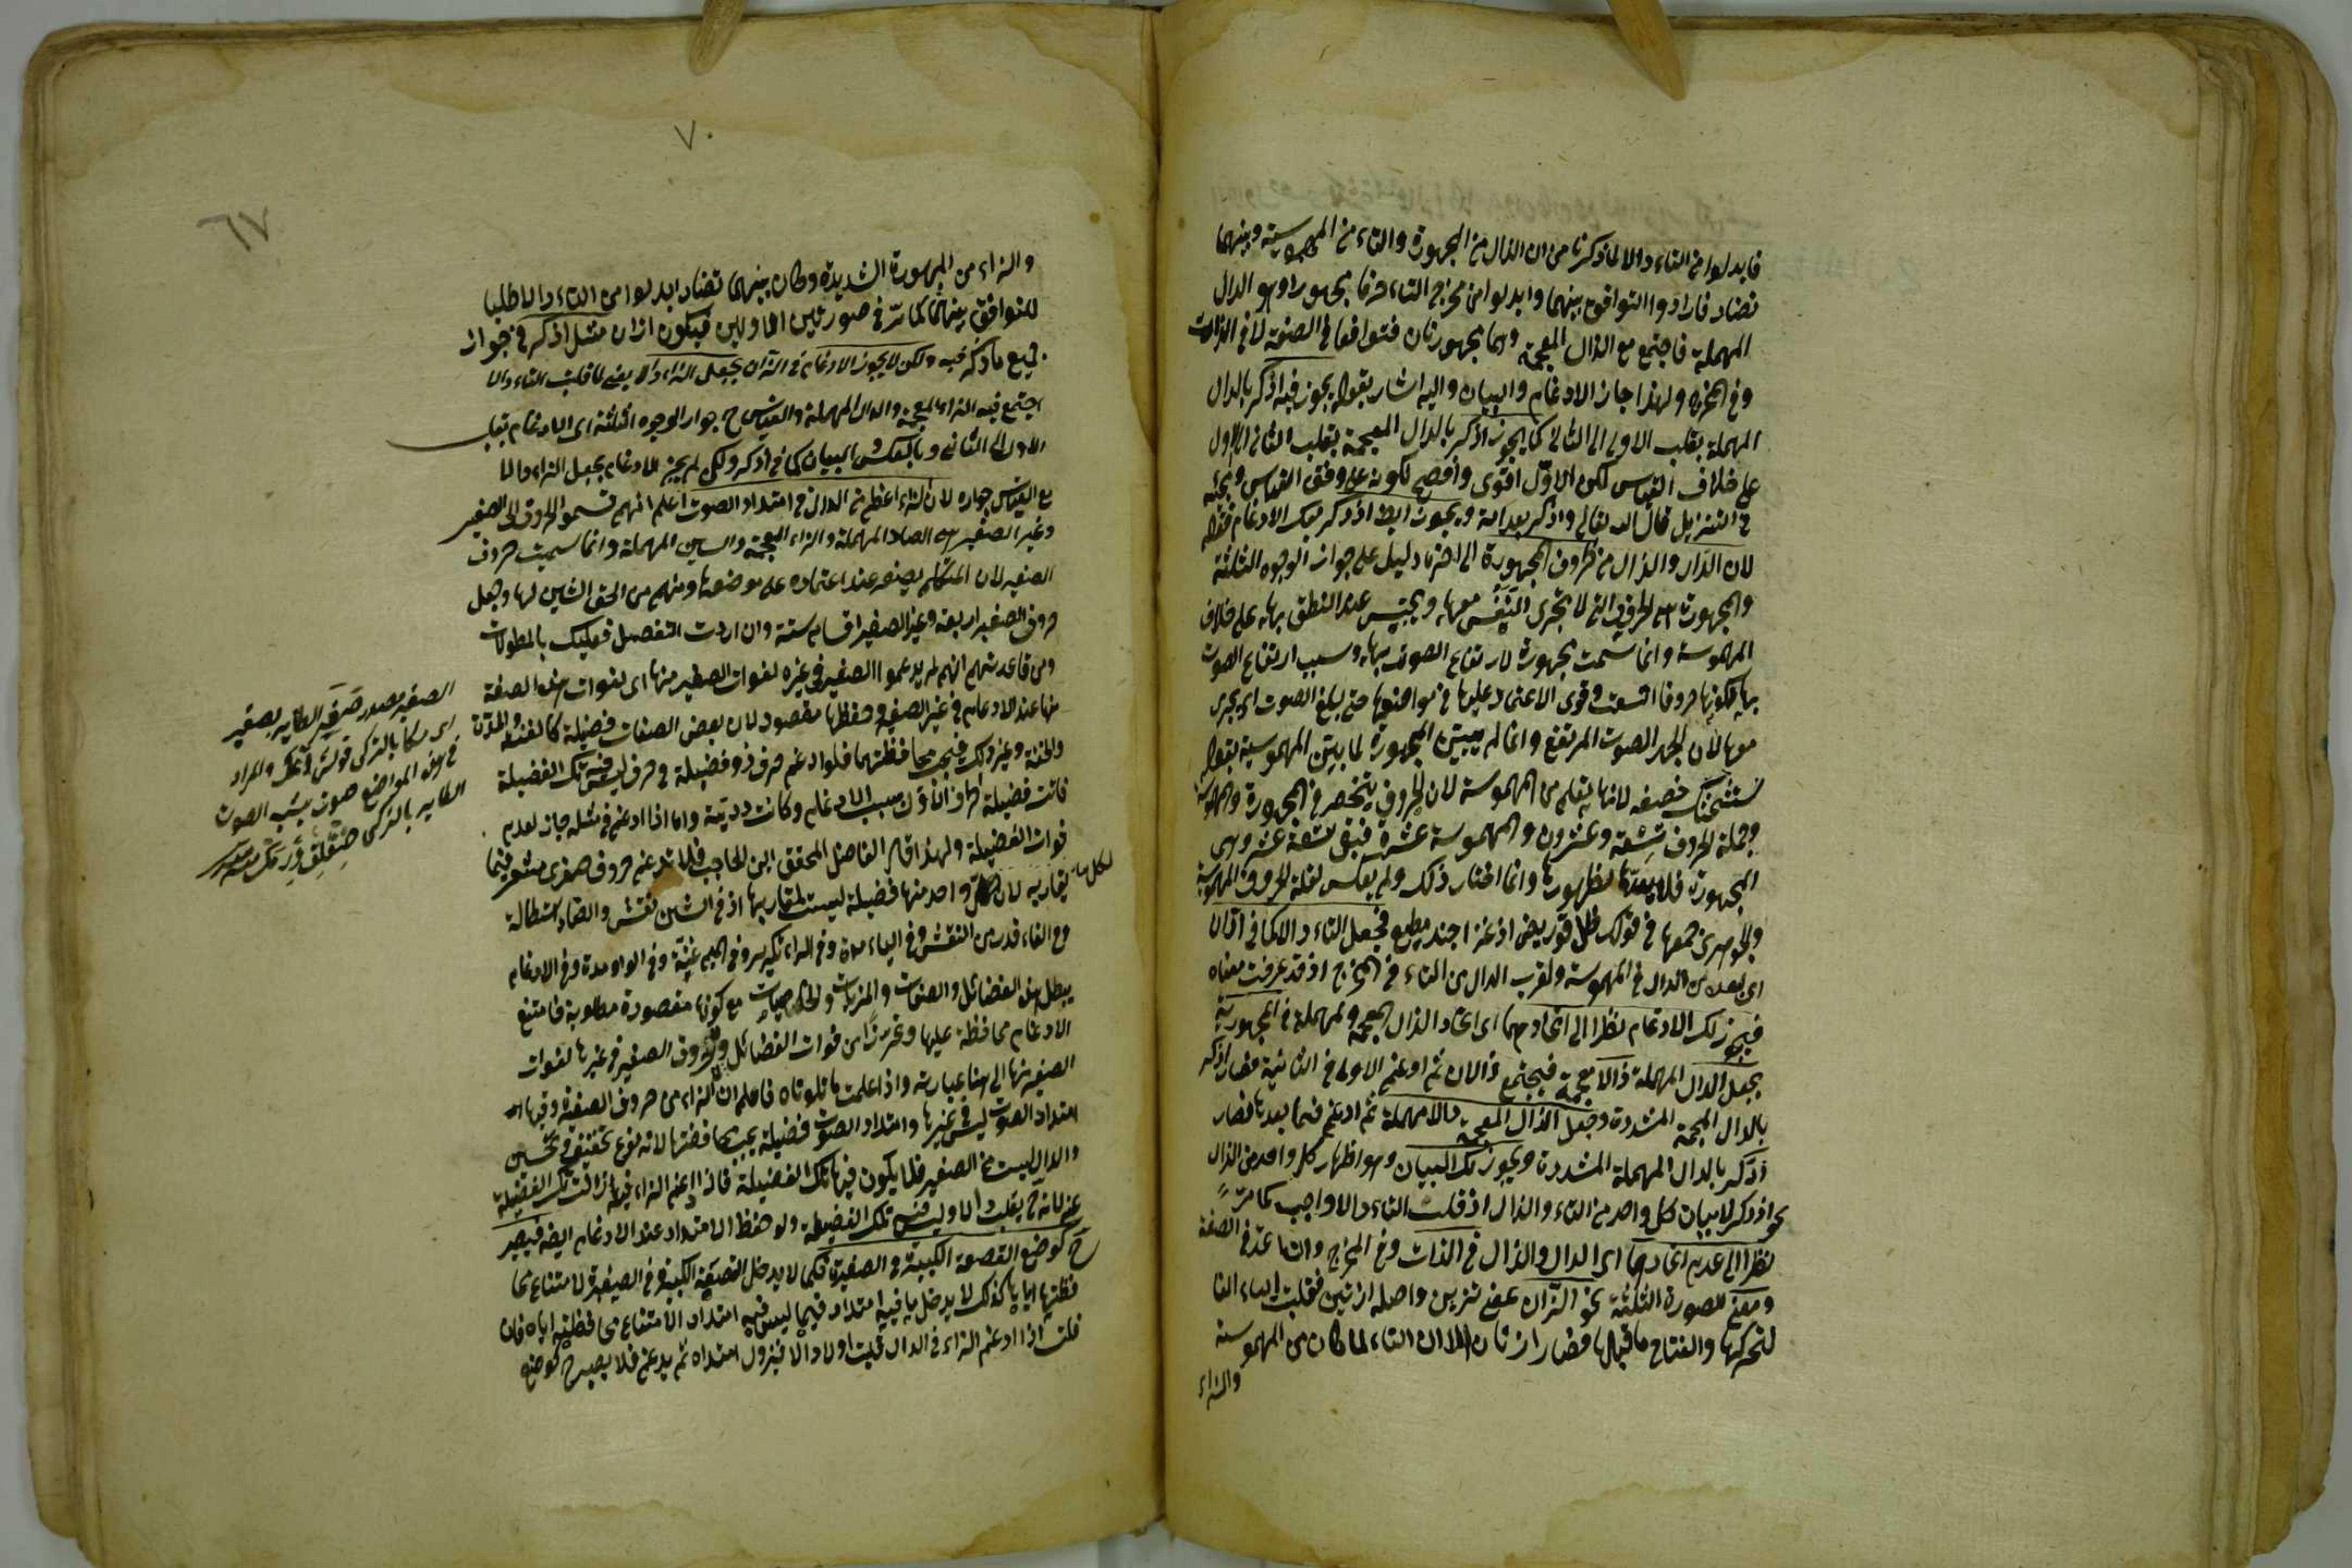 فابدلوا من التاء دالا لما ذكرنا من ان الذال من المجهورة والتاء من المهموسة وبينهما
تضاد فارادوا التوافق بينهما وابدلوا من مخرج التاء حرفا مجهورا وهو الدال
المهملة فاجتمع مع الذال المعجمة وهما مجهورتان فتوافقا في الصفة لا في الذات
وفي المخرج ولهذا جاز الادغام والبيان واليه اشار بقوله يجوز فيه اذكر بالدال
المهملة بقلب الاولى الى الثانى كما يجوز اذكر بالذال المعجمة بقلب الثانى الى الاول
على خلاف القياس لكن الاول اقوى وافصح لكونه على وفق القياس
في التنزيل قال الله تعالى واذكر بعد امة ويجوز ايضا اذدكر بفك الادغام فقوله
لان الدال والذال من حروف المجهورة الى اخره دليل على جواز الوجوه الثلثة
والمجهورة هى الحروف التى لا تجرى النفس معها ويحتبس عند النطق بها على خلاف
المهموسة وانما سميت مجهورة لارتفاع الصوت بها وسبب ارتفاع الصوت
بها كونها حروفا اشبعت وقوى الاعتماد عليها في مواضعها حتى يبلغ الصوت
معها لان الجهر الصوت المرتفع وانما لم يبين المجهورة لما بين المهموسة بقوله
ستشحثك خصفه لانها يعلم من المهموسة لان الحروف ينحصر في المجهورة والمهموسة
وجملة الحروف تسعة وعشرون والمهموسة عشرة فبقى تسعة عشر وهى
المجهورة فلا يعدها لظهورها وانما اختار ذلك ولم يعكس لقلة الحروف المهموسة
والجوهرى جمعها في قولك ظل قو ربض اذ غزا جند مطيع فجعل التاء دالا كما في ادان
اى لبعده من الدال في المهموسة ولقرب الدال من التاء في المخرج اذ قد عرفت معناه
فيجوز لك الادغام نظرا الى اتحادهما اى اتحاد الذال المعجمة والمهملة في المجهورية
بجعل الدال المهملة ذالا معجمة فيجتمع ذالان ثم ادغم الاولى في الثانية فصار اذكر
بالذال المعجمة المشددة وجعل الذال المعجمة دالا مهملة ثم ادغم فيما بعدها فصار
ادكر بالدال المهملة المشددة ويجوز لك البيان وهو اظهار كل واحد من الذال
نحو اذدكر لا بيان كل واحد من التاء والذال اذ قلب التاء دالا واجب كما مر
نظرا الى عدم اتحادهما اى الدال والذال في الذات وفي المخرج في الصفة
ووقع للصورة الثلثة نحو ازان بمعنى تزين واصله ازتين فقلبت الياء الفا
لتحركها وانفتاح ما قبلها فصار ازتان الا ان التاء لما كان من المهموسة
والزاء
٧٠
٦٧
والزاء من المجهورة الشديدة وكان بينهما تضاد ابدلوا من التاء دالا طلبا
للتوافق بينهما كما مر في صورتين الاوليين فيكون ازان مثل اذكر في جواز
جميع ما ذكر فيه ولكن لا يجوز الادغام في ازان بجعل الزاء دالا يعنى لما قلبت التاء دالا
اجتمع فيه الزاء المعجمة والدال المهملة والقياس ح جواز الوجوه الثلثة اى الادغام بقلب
الاول الى الثانى وبالعكس والبيان كما في اذكر ولكن لم يجز الادغام بجعل الزاء دالا
مع القياس جوازه لان الزاء اعظم من الدال في امتداد الصوت اعلم انهم قسموا الحروف الى الصفير
وغير الصفير هى الصاد المهملة والزاء المعجمة والسين المهملة وانما سميت حروف
الصفير لان المتكلم يصفر عند اعتماده على موضعها ومنهم من الحق الشين لها وجعل
حروف الصفير اربعة وغير الصفير اقسام ستة وان اردت التفصيل فعليك بالمطولات
ومن قاعدتهم انهم لم يدغموا الصفير في غيره لفوات الصفير منها اى لفوات هذه الصفة
منها عند الادغام في غير الصفير وحفظها مقصود لان بعض الصفات فضيلة كالغنة والمدة
والخفة وغير ذلك فيجب محافظتهما فلو ادغم حرف ذو فضيلة في حرف ليس فيه تلك الفضيلة
فاتت فضيلة الحرف الاول بسبب الادغام وكانت واما اذا ادغم في مثله جاز لعدم
فوات الفضيلة ولهذا قال الفاضل المحقق ابن الحاجب فلا تدغم حروف ضوى مشفر فيما
يقاربه لان لكل واحد منها فضيلة ليست لمقاربها اذ في الشين تفش والضاد استطالة
وفي الفاء قدر من التفشى وفي الياء مدة وفي الراء تكرير وفي الميم غنة وفي الواو مدة وفي الادغام
يبطل هذه الفضائل والصفات والمزيات مع كونها مقصودة مطلوبة فامتنع
الادغام محافظة عليها وتحرزا من فوات الفضائل وحروف الصفير في غيرها لفوات
الصفير منها الى هنا عبارته واذا علمت ما تلوناه فاعلم ان الزاء من حروف الصفير وفيها
امتداد الصوت ليس في غيرها وامتداد الصوت فضيلة يجب محافظتها لانه نوع تحسين
والدال ليست من الصفير فلا يكون فيها تلك الفضيلة فاذا ادغم الزاء فيها زالت تلك الفضيلة
عنه لانه ح يقلب دالا وليس فيه تلك الفضيلة ولو حفظ الامتداد عند الادغام ايضا فيصير
ح كوضع القصعة الكبيرة في الصغيرة فكما لا يدخل القصعة الكبيرة في الصغيرة لامتناع محا
فظتها اياها كذلك لا يدخل ما فيه امتداد فيما ليس فيه امتداد لامتناع محافظته اياه فان
قلت اذا ادغم الزاء في الدال قلبت اولا دالا فيزول امتداده ثم يدغم فلا يصير ح كوضع
الصفير مصدر صفر الطاير يصفر
اى مكا بالتركى قوش والمراد
في هذه المواضع صوت يشبه الصوت
الطاير بالتركى